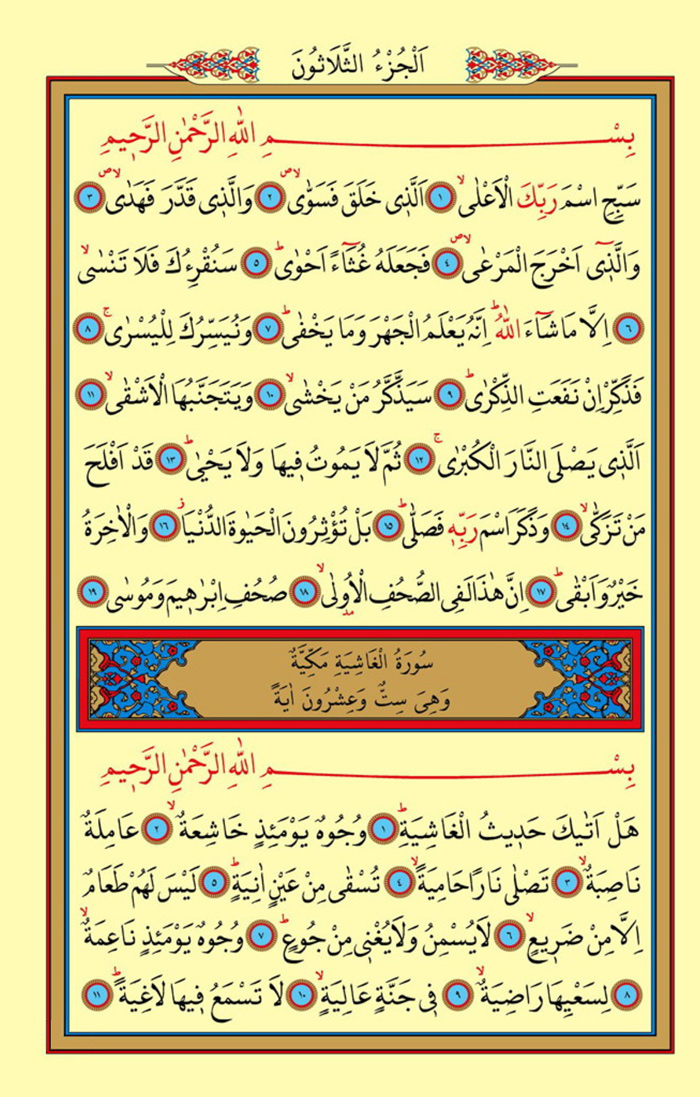 اَلْجُزْءُ الثَّلَاثُونَ
بِسْمِ اللّٰهِ الرَّحْمٰنِ الرَّح۪يمِ
سَبِّحِ اسْمَ رَبِّكَ الْاَعْلٰىۙ ﴿١﴾ اَلَّذ۪ي خَلَقَ فَسَوّٰىۙۖ ﴿٢﴾ وَالَّذ۪ي قَدَّرَ فَهَدٰىۙۖ ﴿٣﴾
وَالَّذ۪ٓي اَخْرَجَ الْمَرْعٰىۙۖ ﴿٤﴾ فَجَعَلَهُ غُثَٓاءً اَحْوٰىۜ ﴿٥﴾ سَنُقْرِئُكَ فَلَا تَنْسٰىۙ
﴿٦﴾ اِلَّا مَا شَٓاءَ اللّٰهُۜ اِنَّهُ يَعْلَمُ الْجَهْرَ وَمَا يَخْفٰىۜ ﴿٧﴾ وَنُيَسِّرُكَ لِلْيُسْرٰىۚ ﴿٨﴾
فَذَكِّرْ اِنْ نَفَعَتِ الذِّكْرٰىۜ ﴿٩﴾ سَيَذَّكَّرُ مَنْ يَخْشٰىۙ ﴿١٠﴾ وَيَتَجَنَّبُهَا الْاَشْقٰىۙ ﴿١١﴾
اَلَّذ۪ي يَصْلَى النَّارَ الْكُبْرٰىۚ ﴿١٢﴾ ثُمَّ لَا يَمُوتُ ف۪يهَا وَلَا يَحْيٰىۜ ﴿١٣﴾ قَدْ اَفْلَحَ
مَنْ تَزَكّٰىۙ ﴿١٤﴾ وَذَكَرَ اسْمَ رَبِّه۪ فَصَلّٰىۜ ﴿١٥﴾ بَلْ تُؤْثِرُونَ الْحَيٰوةَ الدُّنْيَاۘ ﴿١٦﴾ وَالْاٰخِرَةُ
خَيْرٌ وَاَبْقٰىۜ ﴿١٧﴾ اِنَّ هٰذَا لَفِي الصُّحُفِ الْاُو۫لٰىۙ ﴿١٨﴾ صُحُفِ اِبْرٰه۪يمَ وَمُوسٰى ﴿١٩﴾
سُورَةُ الْغَاشِيَةِ مَكِّيَّةٌ
وَهِيَ سِتٌّ وَعِشْرُونَ اٰيَةً
بِسْمِ اللّٰهِ الرَّحْمٰنِ الرَّح۪يمِ
هَلْ اَتٰيكَ حَد۪يثُ الْغَاشِيَةِۜ ﴿١﴾ وُجُوهٌ يَوْمَئِذٍ خَاشِعَةٌۙ ﴿٢﴾ عَامِلَةٌ
نَاصِبَةٌۙ ﴿٣﴾ تَصْلٰى نَارًا حَامِيَةًۙ ﴿٤﴾ تُسْقٰى مِنْ عَيْنٍ اٰنِيَةٍۜ ﴿٥﴾ لَيْسَ لَهُمْ طَعَامٌ
اِلَّا مِنْ ضَر۪يعٍۙ ﴿٦﴾ لَا يُسْمِنُ وَلَا يُغْن۪ي مِنْ جُوعٍۜ ﴿٧﴾ وُجُوهٌ يَوْمَئِذٍ نَاعِمَةٌۙ
﴿٨﴾ لِسَعْيِهَا رَاضِيَةٌۙ ﴿٩﴾ ف۪ي جَنَّةٍ عَالِيَةٍۙ ﴿١٠﴾ لَا تَسْمَعُ ف۪يهَا لَاغِيَةًۜ ﴿١١﴾